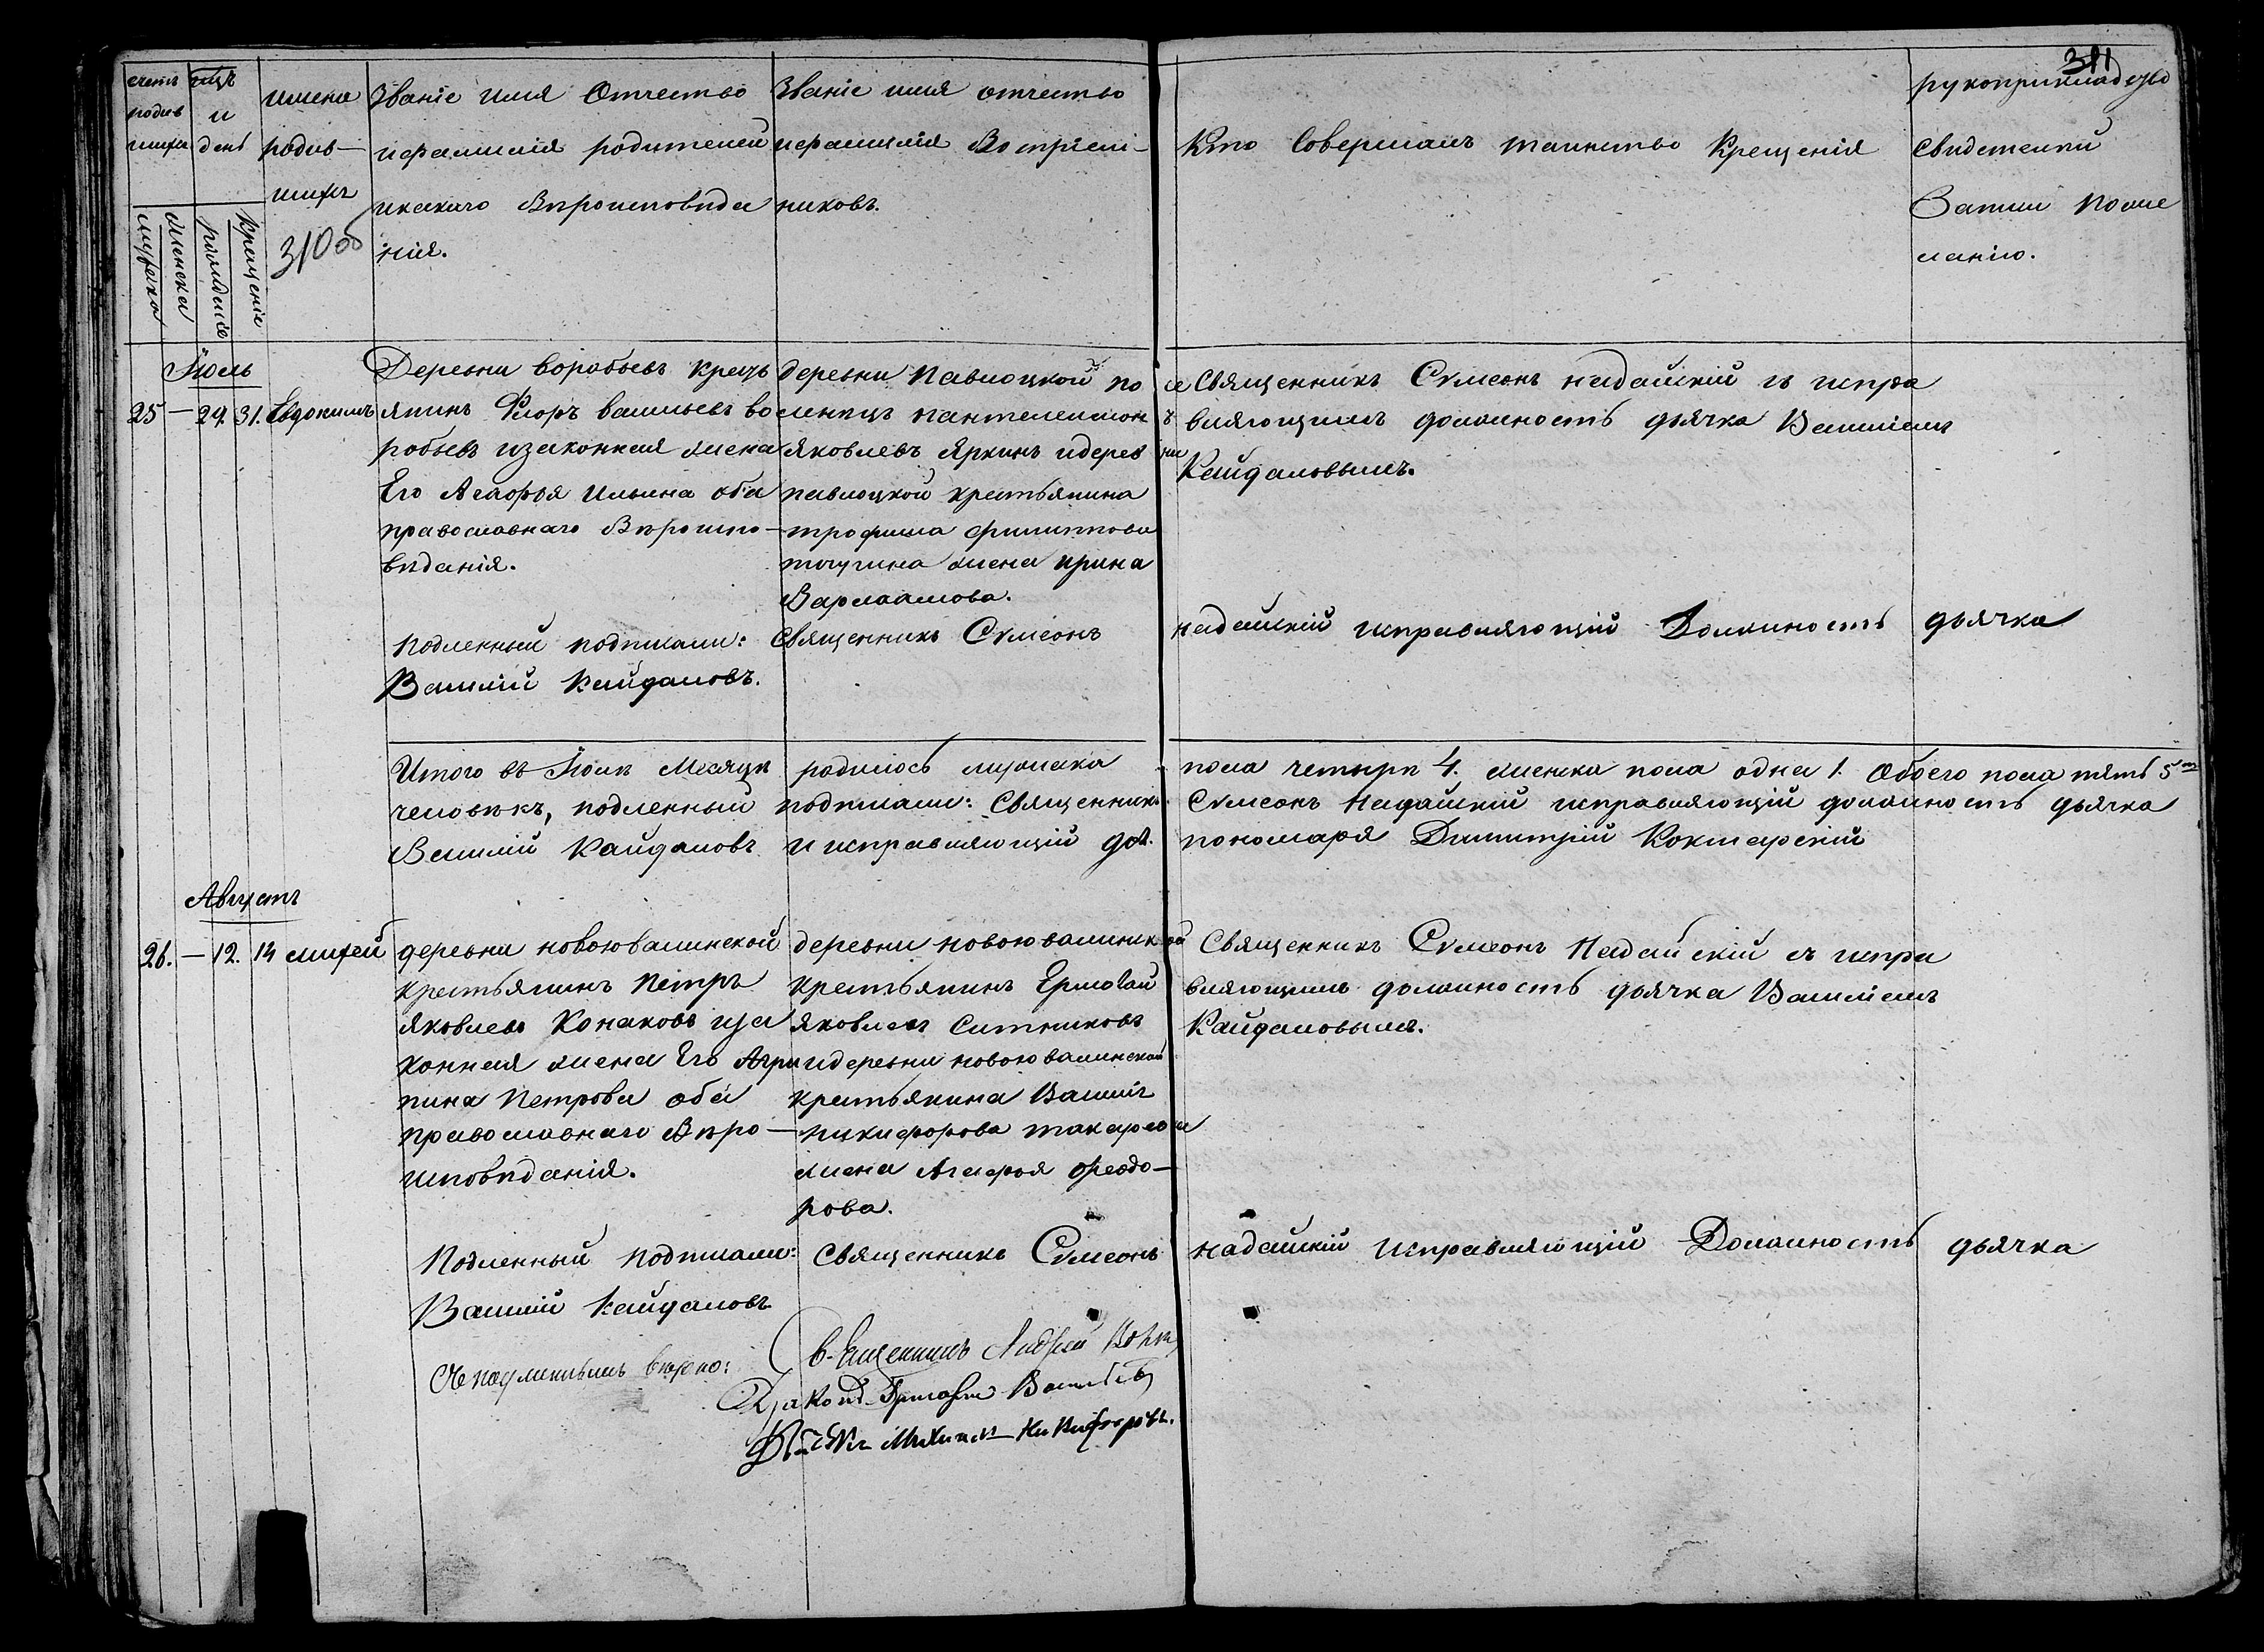 311
счетъ родив шихся
мужеска женска
мцъ и день
рожденіе крещеніе
имена родив— шихъ
310об
Званіе имя Отчество
ифамилія родителей
икакаго Вѣроисповѣда
нія.
Званіе имя отчество
ифамилія Воспріем—
никовъ.
Кто Совершалъ таинство Крещенія
рукоприкладство
Свидетелей
Записи Поже
ланію.
Іюль
25 — 29. 31. Евдокимъ
Деревни воробьевъ крест
янинъ Флоръ васильевъ во
робьевъ изаконная жена
Его Агафья Ильина оба
православнаго Вѣроиспо—
вѣданія.
деревни павлоцкой по
селенецъ пантелеимон
Яковлевъ Яркинъ идерев
павлоцкой крестьянина
трофима филиппова
жена ирина
Варлаамова.
Священникъ Сѵмеонъ надайскій съ испра
вляющимъ должность дьячка Василіемъ
Кайдаловымъ.
подленный подписали: Священникъ Сѵмеонъ надайскій исправляющій Должность дьячка
Василій Кайдаловъ.
Итого въ Іюлѣ Месяцѣ родилось мужеска пола четыри 4. женска пола одна 1. Обоего пола пять 5ть
человѣкъ, подленный подписали: Священникъ Сѵмеонъ Надайскій исправляющій должность дьячка
Василій Кайдаловъ и исправляющій дол. пономаря Димитрій Кокшарскій
Августъ
26. — 12. 14 михей
деревни новоювалинской
крестьянинъ Петръ
Яковлевъ Конаковъ иза
конная жена Его Агри
пина Петрова оба
православнаго Вѣро—
исповѣданія.
деревни новоювалинской
крестьянинъ Ермолай
Яковлевъ Ситниковъ
идеревни новоювалинской
крестьянина Василія
никифорова
жена Агафья Феодо—
рова.
Священникъ Сѵмеонъ Надайскій съ испра
вляющимъ должность дьячка Василіемъ
Кайдаловымъ.
Подленный подписали: Священникъ Сѵмеонъ надайскій исправляющій Должность дьячка
Василій Кайдаловъ
Съ подлиннымъ вѣрно:
Священникъ Андрей
Діаконъ Григорій
Дьячекъ Михаилъ Никифоровъ.